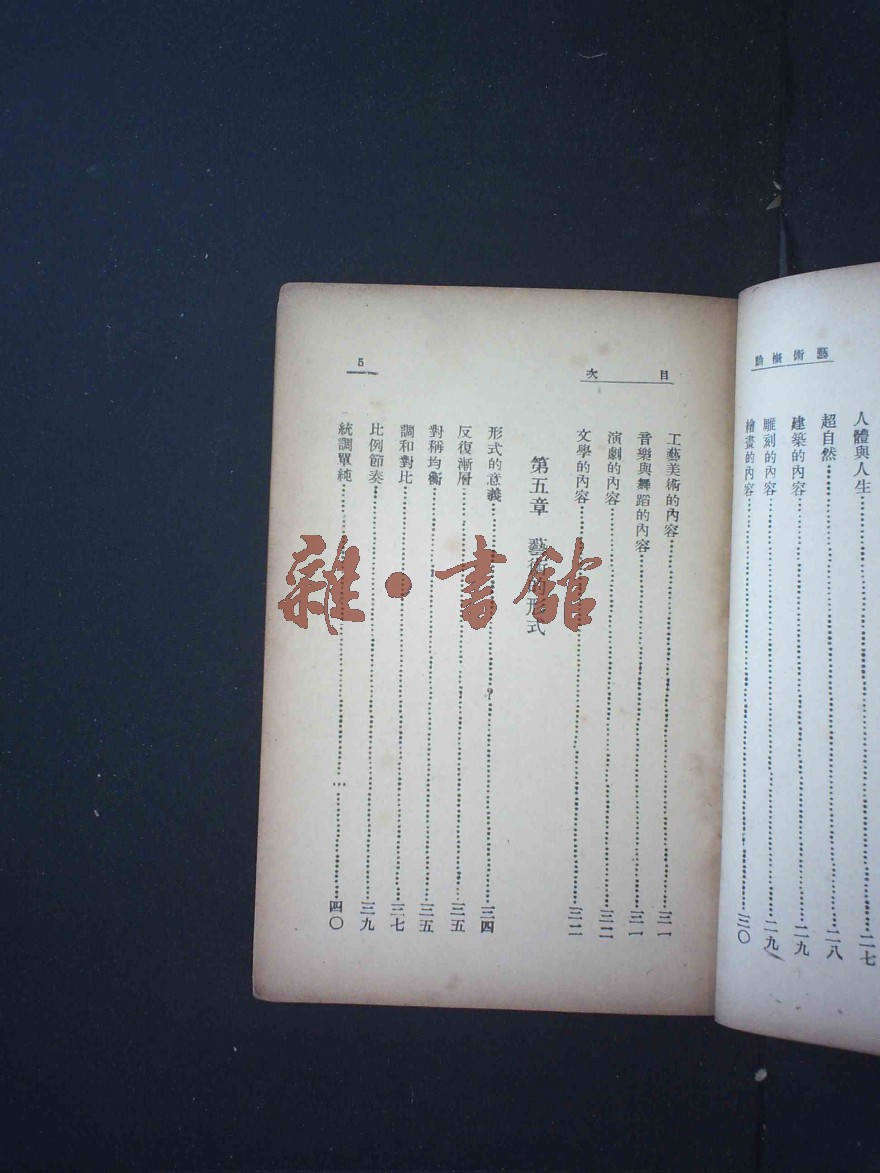 藝術概論
人體與人生……二七
超自然……二八
建築的內容……二九
雕刻的內容……二九
繪畫的內容……三〇
目次
5
工藝美術的內容……三一
音樂與舞蹈的內容……三一
演劇的內容……三二
文學的內容……三二
第五章 藝術的形式
形式的意義……三四
反復漸層……三五
對稱均衡……三五
調和對比……三七
比例節奏……三九
統調單純……四〇
雜·書館